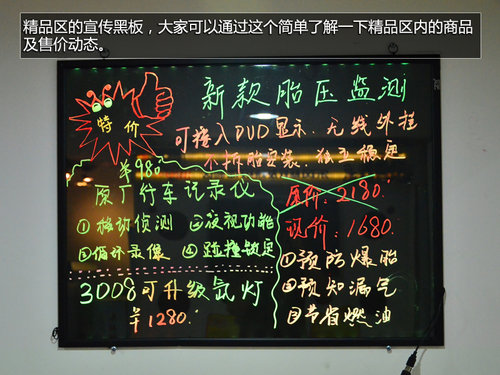 精品区的宣传黑板，大家可以通过这个简单了解一下精品区内的商品
及售价动态。
特价
新款胎压监测
可接入DVD显示、无线外挂
不拆胎安装、独立稳定
￥980元
原厂行车记录仪
①移动侦测 ②夜视功能
③循环录像 ④碰撞锁定
3008可升级氙灯
￥1280.
原价:2180.
现价:1680.
①预防爆胎
②预知漏气
③节省燃油